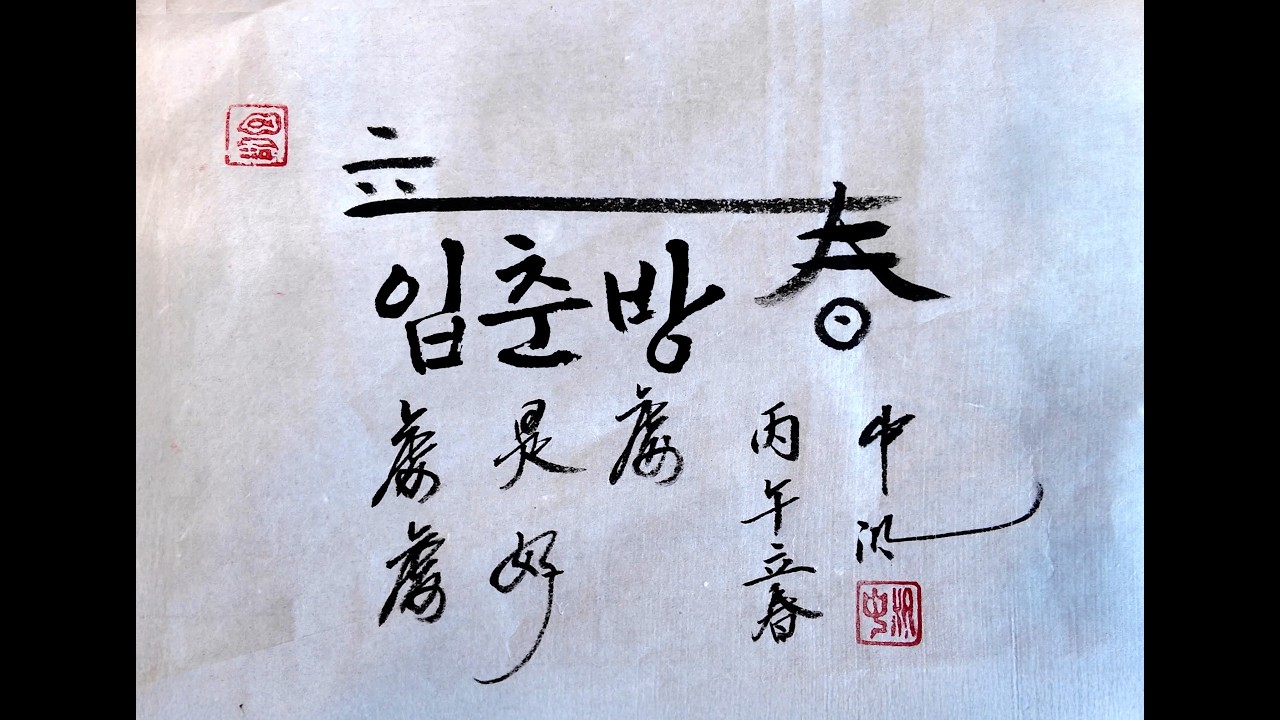 立春
입춘방
處處
是好
處
丙午立春
中